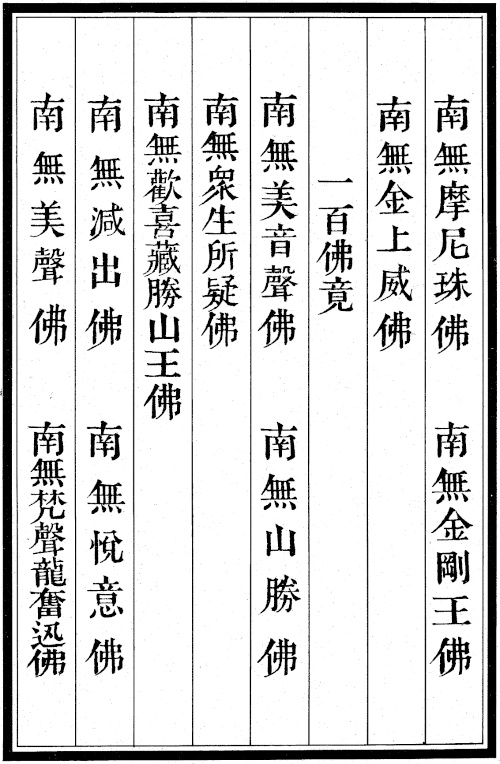 南無摩尼珠佛　南無金剛王佛
南無金上威佛
一百佛竟
南無美音聲佛　南無山勝佛
南無衆生所疑佛
南無歡喜藏勝山王佛
南無減出佛　南無悅意佛
南無美聲佛　南無梵聲龍奮迅佛